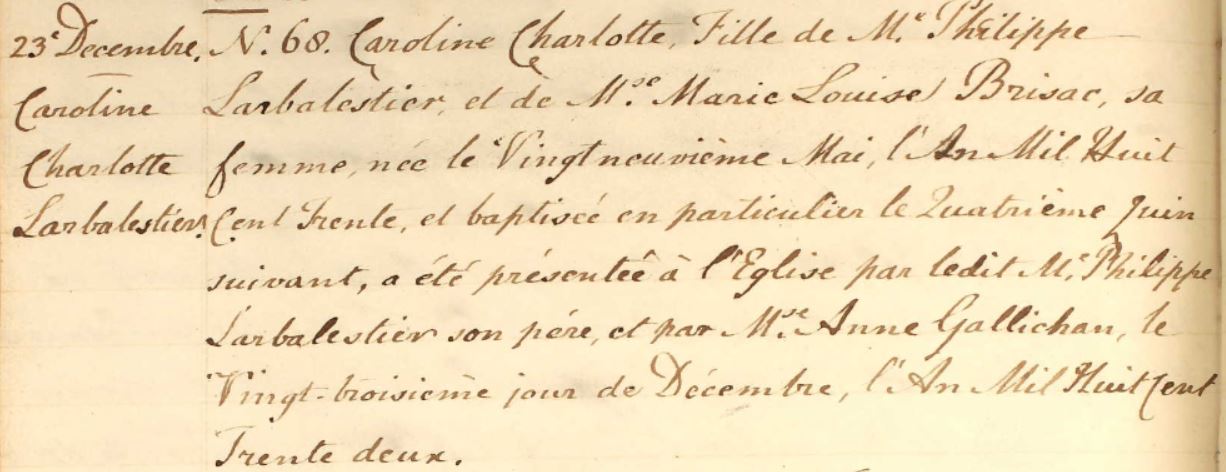 23e Decembre. N. 68. Caroline Charlotte, Fille de Mr. Philippe
Caroline Larbalestier, et de Mse. Marie Louise Brisac, sa
Charlotte femme, née le Vingt neuvième Mai, l'An Mil Huit
Larbalestier. Cent Trente, et baptiseé en particulier le Quatrième Juin
suivant, a été présenteê à l'Eglise par ledit Mr. Philippe
Larbalestier son pére, et par Mse. Anne Gallichan, le
Vingt-troisième jour de Décembre, l'An Mil Huit Cent
Trente deux.